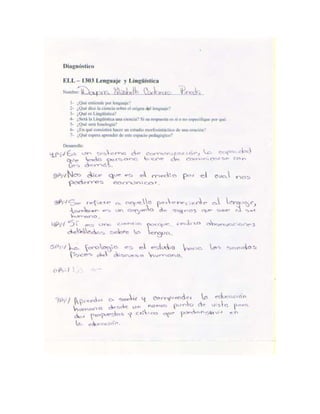 Diagnóstico
ELL – 1303 Lenguaje y Lingüística
Nombre: Elizabeth Contreras Pineda
1- ¿Qué entiende por lenguaje?
2- ¿Qué dice la ciencia sobre el origen del lenguaje?
3- ¿Qué es Lingüística?
4- ¿Será la Lingüística una ciencia? Si su respuesta es sí o no especifique por qué.
5- ¿Qué será fonología?
6- ¿En qué consistirá hacer un estudio morfosintáctico de una oración?
7- ¿Qué espera aprender de este espacio pedagógico?
Desarrollo:
Es un sistema de comunicación, la capacidad
que toda persona tiene de comunicarse con
los demás.
Nos dice que es el medio por el cual nos
podemos comunicar.
Se refiere a aquello perteneciente al lenguaje,
tambien es un conjunto de signos que usar el ser
humano.
Sí es una ciencia porque realiza observaciones
detalladas sobre la lengua.
La fonología es el estudio hacia los sonidos
físicos del discurso humano.
Aprender a sentir y comprender la educación
humana desde un nuevo punto de vista para
dar propuestas y críticas que en
la educación.